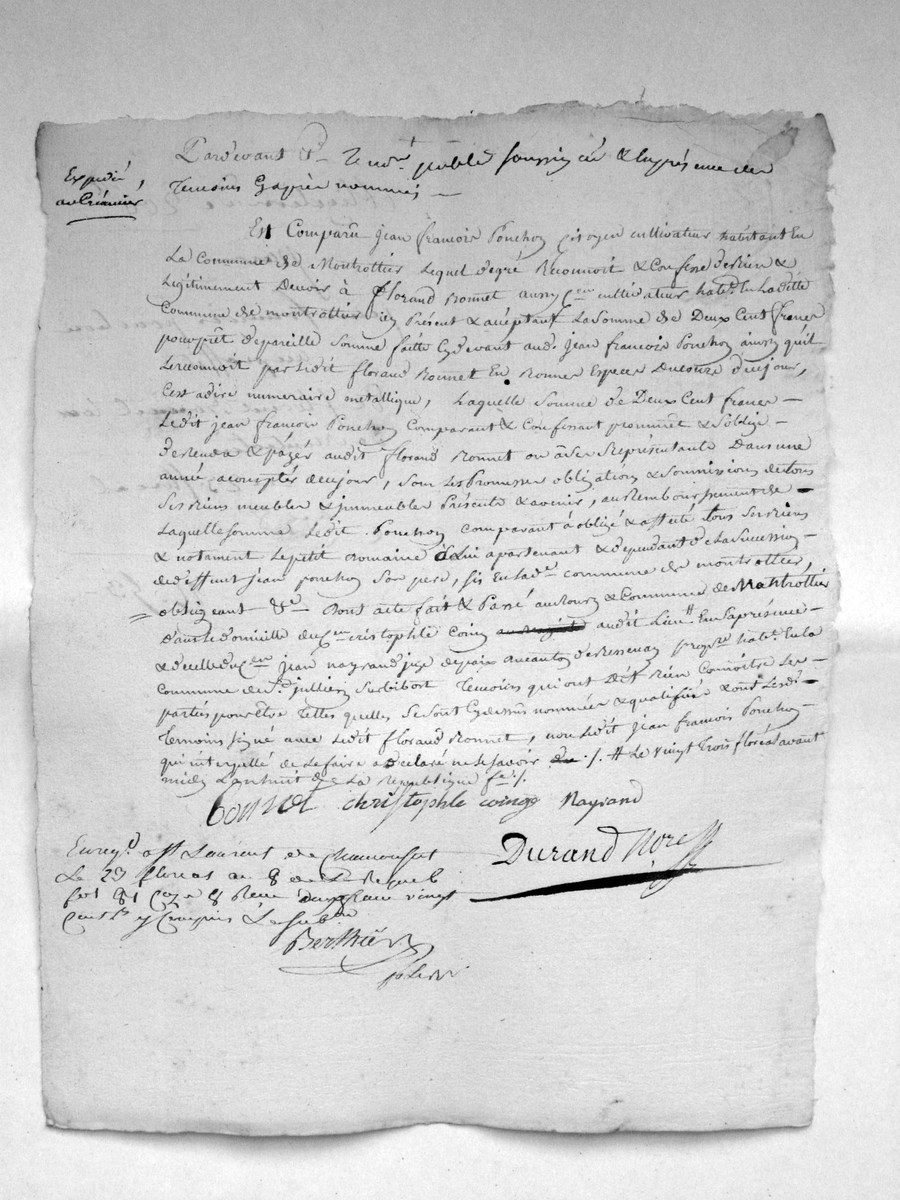 Pardevant Le no.re public soussigné & la présence des
Expedié
au Créancier
Temoins Cyaprès nommés —
Est Comparû jean françois Ponchon citoyen cultivateur habitant En
La Commune de Montrottier Lequel degré Reconnoit & Confesse bien &
Légitimement Devoir à florand Bonnet aussy C.en cultivateur habt. En La ditte
Commune de montrottier icy Présent & acceptant La somme de Deux Cent francs
pour prêt de pareille somme faitte Cydevant aud. jean françois Ponchon ainsy quil
Lereconnoit par Ledit florand Bonnet En Bonnes Especes Ducours Decejour,
C'est adire numeraire métallique, Laquelle somme de Deux Cent francs —
Ledit jean françois Ponchon Comparant & Confessant prommet & Soblige —
De rendre & payer audit florand Bonnet ou à Ses Représentants Dans une
année acompter decejour, sous Les Promesses obligations & Soumissions de tous
Ses biens meubles & immeubles Présents & avenir, au Remboursement de —
Laquelle somme Ledit Ponchon comparant à obligé & affecté tous Ses biens
& notament Le petit Domaine à Lui apartenant & dependant de La Succession —
de deffunt jean ponchon son pere, sis En Lad. commune de montrottier,
obligeant &.a Dont acte fait & Passé au Bourg & Commune de Montrottier
Dans Le domicille du C.en cristophle Coing audit Lieu # En La présence —
& de celle du C.en jean nagrand juge de paix du canton de Bessenay prop.re habt. En La
commune de S.t jullien Surbibost Temoins qui ont Dit bien Connoitre Les —
parties pour être telles quelles Se sont Cydessus nommées & qualifiées & ont Lesd. —
Temoins signé avec Ledit florand Bonnet, non Ledit jean françois Ponchon —
qui interpellé de Le faire a déclaré ne Le Savoir ./. # Le vingt Trois floréal avant
midy L'an huit de La Republique ./.
bonnet christophle coing Nagrand
Durand Nore
Enreg.é a St Laurent de Chamousset
Le 23 floreal an 8 de La Repub
fol 81 Case 8 Reçu deux francs vingt
Cent.s y Compris La Sub.on
Berthier